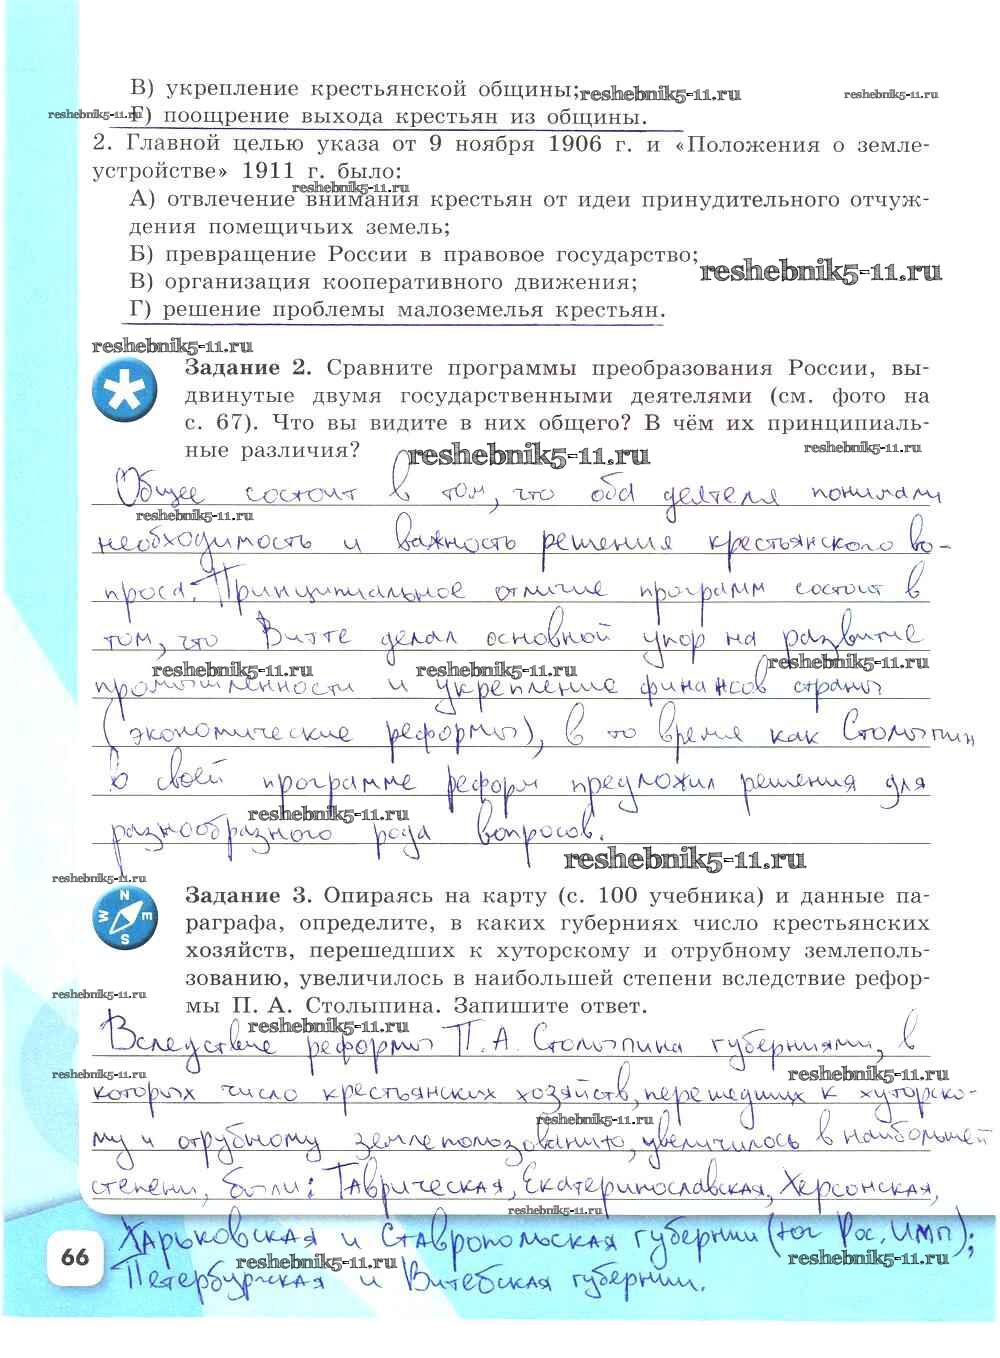 В) укрепление крестьянской общины; reshebnik5-11.ru reshebnik5-11.ru
reshebnik5-11.ru Г) поощрение выхода крестьян из общины.
2. Главной целью указа от 9 ноября 1906 г. и «Положения о земле-
устройстве» 1911 г. было:
reshebnik5-11.ru
А) отвлечение внимания крестьян от идеи принудительного отчуж-
дения помещичьих земель;
Б) превращение России в правовое государство;
reshebnik5-11.ru
В) организация кооперативного движения;
Г) решение проблемы малоземелья крестьян.
reshebnik5-11.ru
Задание 2. Сравните программы преобразования России, вы-
двинутые двумя государственными деятелями (см. фото на
с. 67). Что вы видите в них общего? В чём их принципиаль-
ные различия? reshebnik5-11.ru reshebnik5-11.ru
Общее состоит в том, что оба деятеля понимали
reshebnik5-11.ru
необходимость и важность решения крестьянского во-
проса. Принципиальное отличие программ состоит в
том, что Витте делал основной упор на развитие
reshebnik5-11.ru reshebnik5-11.ru reshebnik5-11.ru
промышленности и укрепление финансов страны
(экономические реформы), в то время как Столыпин
в своей программе реформ предложил решения для
reshebnik5-11.ru
разнообразного рода вопросов.
reshebnik5-11.ru
reshebnik5-11.ru
N W E S
Задание 3. Опираясь на карту (с. 100 учебника) и данные па-
раграфа, определите, в каких губерниях число крестьянских
хозяйств, перешедших к хуторскому и отрубному землеполь-
зованию, увеличилось в наибольшей степени вследствие рефор-
reshebnik5-11.ru
мы П. А. Столыпина. Запишите ответ.
reshebnik5-11.ru
Вследствие реформы П.А. Столыпина губерниями, в
reshebnik5-11.ru reshebnik5-11.ru
которых число крестьянских хозяйств, перешедших к хуторско-
reshebnik5-11.ru
му и отрубному землепользованию, увеличилось в наибольшей
степени, были: Таврическая, Екатеринославская, Херсонская,
reshebnik5-11.ru
Харьковская и Ставропольская губернии (юг Рос. Имп);
66 reshebnik5-11.ru reshebnik5-11.ru
Петербургская и Витебская губернии.